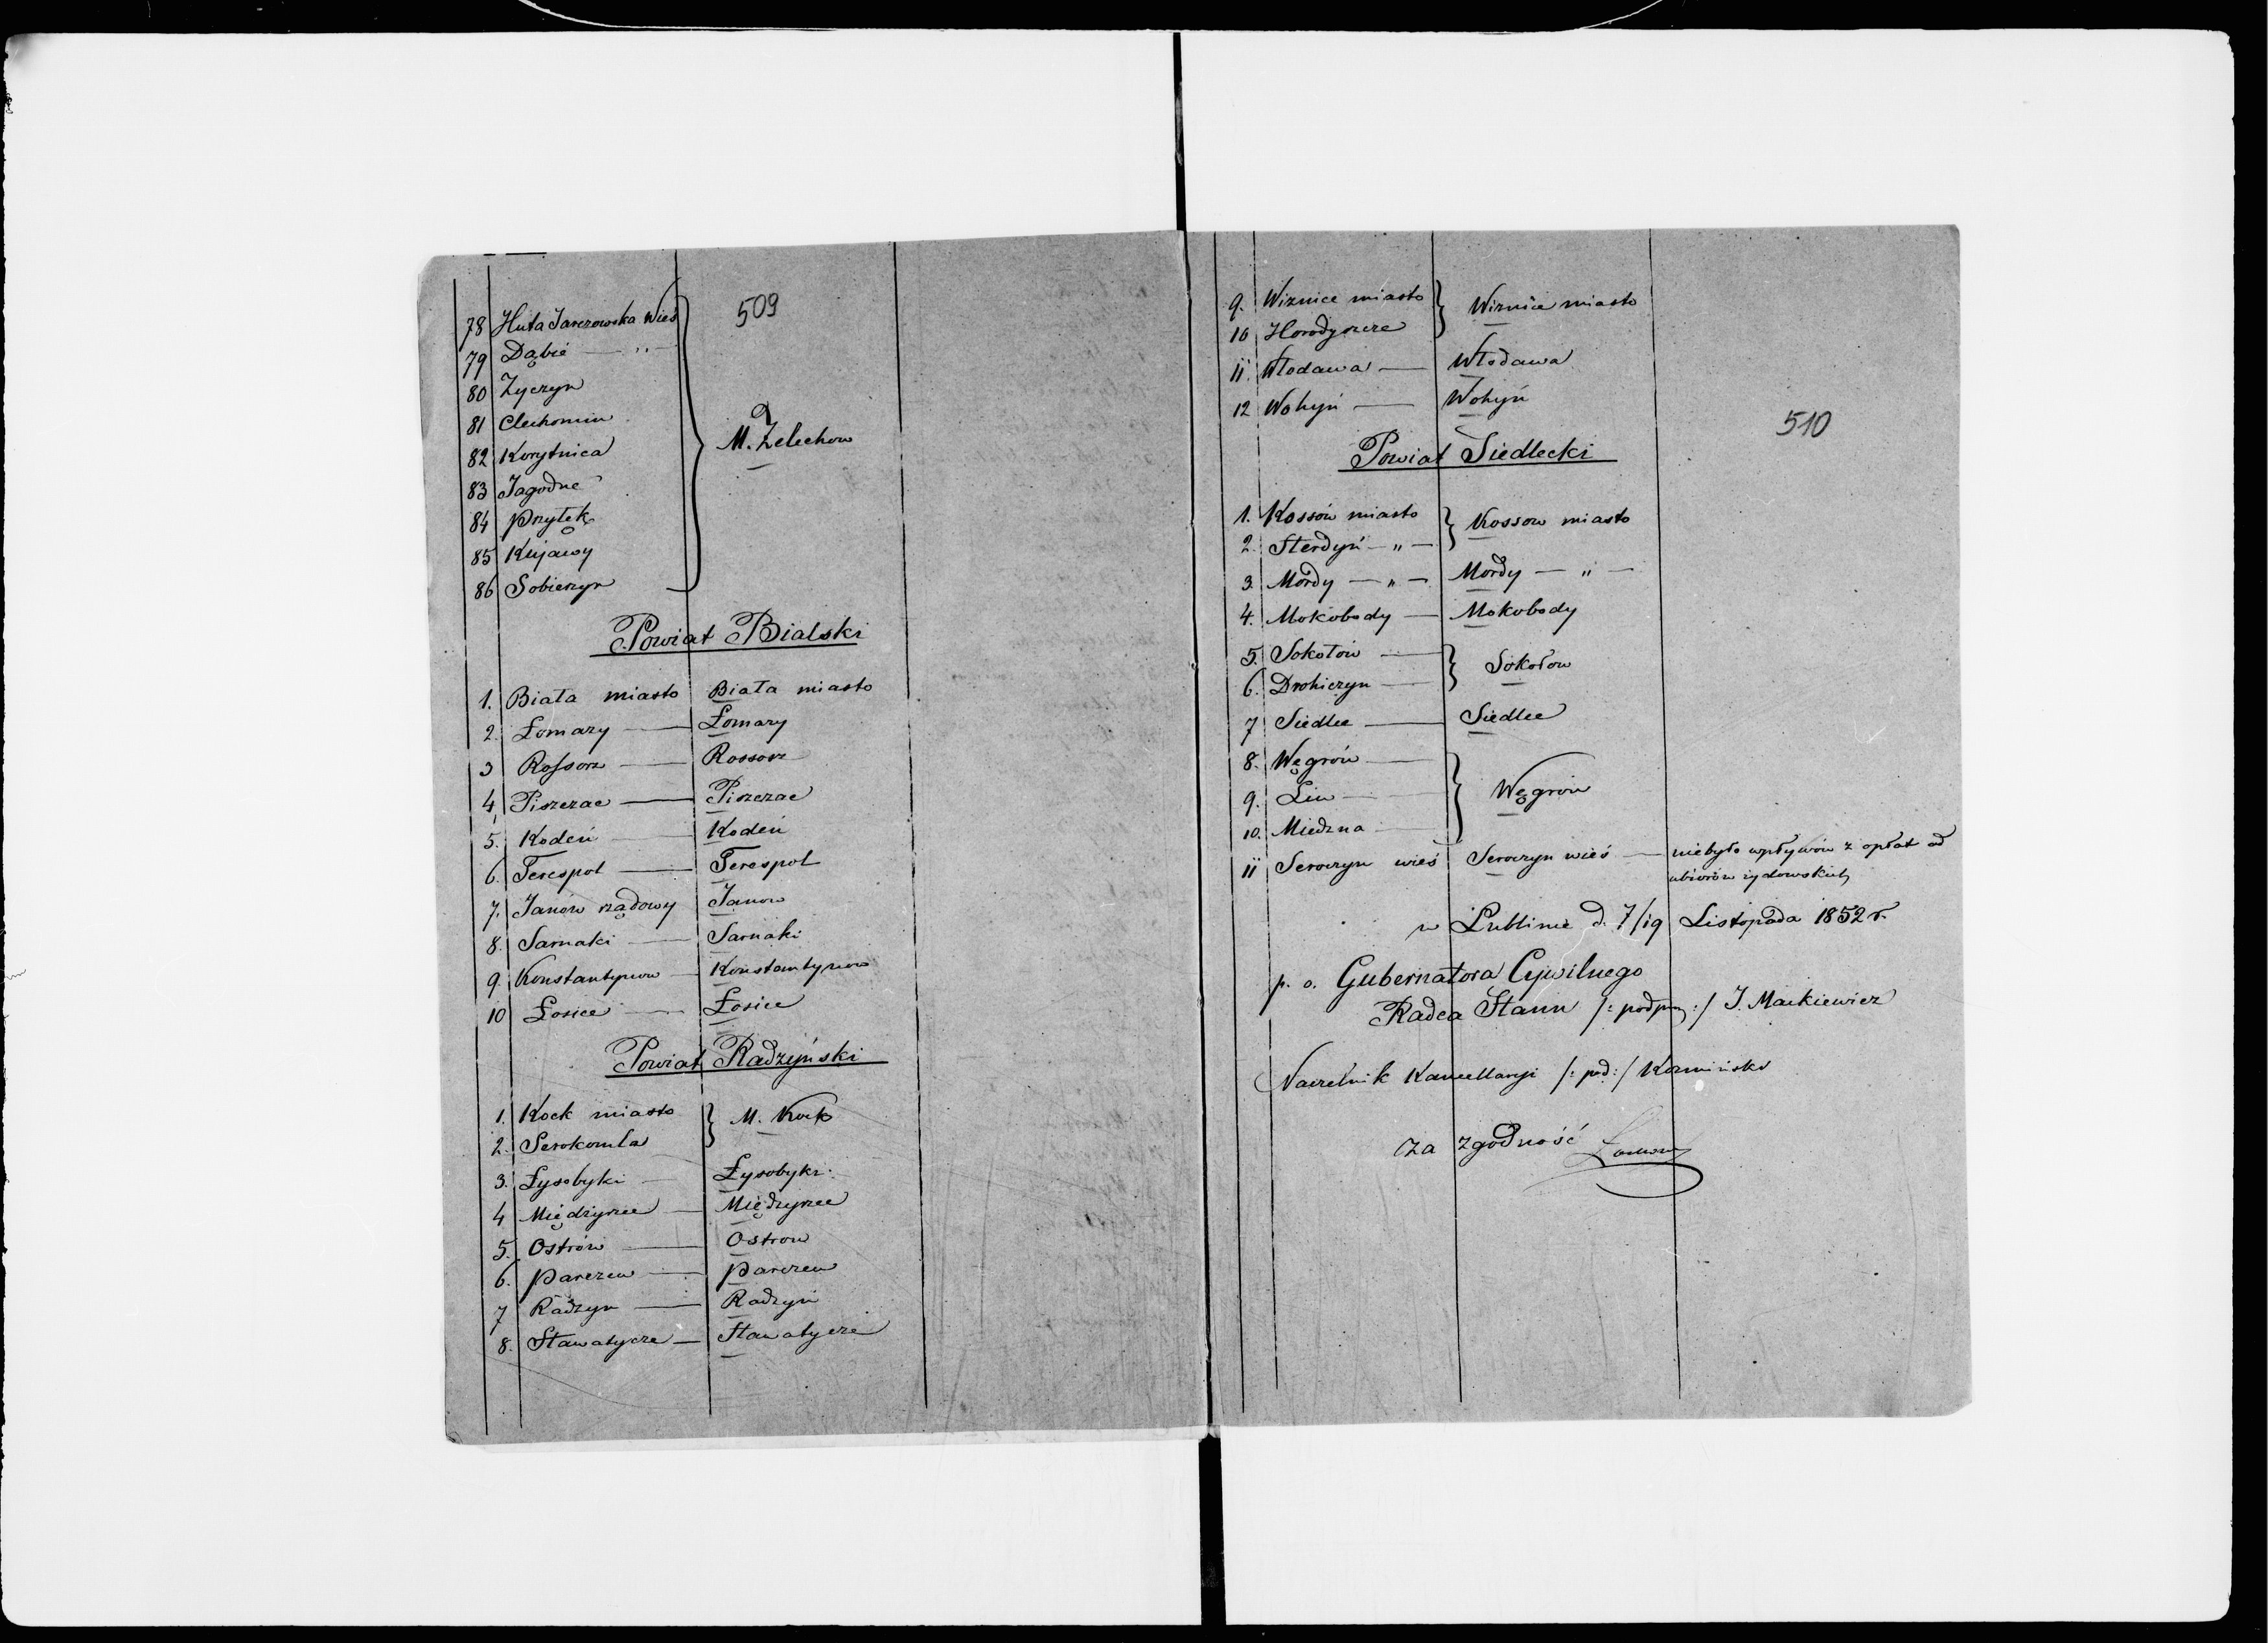 509
78 Huta Jarczowska Wieś
79 Dąbie — " —
80 Życzyn
81 Clechomin
82 Korytnica
83 Jagodne
84 Przyłęk
85 Kujawy
86 Sobieszyn
M. Żelechow
Powiat Bialski
1. Biała miasto Biała miasto
2. Łomazy — Łomazy
3 Rossosz — Rossosz
4. Piszczac — Piszczac
5. Kodeń — Kodeń
6. Terespol — Terespol
7. Janów rządowy Janow
8. Sarnaki — Sarnaki
9. Konstantynow — Konstantynow
10 Łosice — Łosice
Powiat Radzyński
1. Kock miasto
2. Serokomla
M. Kock
3. Łysobyki — Łysobyki
4 Międzyrzec — Międzyrzec
5. Ostrów — Ostrow
6. Parczew — Parczew
7 Radzyn — Radzyń
8. Sławatycze — Sławatycze
9. Wiznice miasto
10 Horodyszcze
Wiznice miasto
11. Włodawa — Włodawa
12 Wohyń — Wohyń
510
Powiat Siedlecki
1. Kossów miasto
2. Sterdyń — " —
Kossow miasto
3. Mordy — " — Mordy — " —
4. Mokobody — Mokobody
5. Sokołów —
6. Drohiczyn —
Sokołow
7 Siedlce — Siedlce
8. Węgrów —
9. Liw —
10. Miedzna —
Węgrów
11 Seroczyn wieś Seroczyn wieś — niebyło wpływów z opłat od
ubiorów żydowskich
w Lublinie d. 7/19 Listopada 1852 r.
p. o. Gubernatora Cywilnego
Radca Stanu /: podpis :/ J. Mackiewicz
Naczelnik Kancellaryi /: pod :/ Koźmiński
Za zgodność